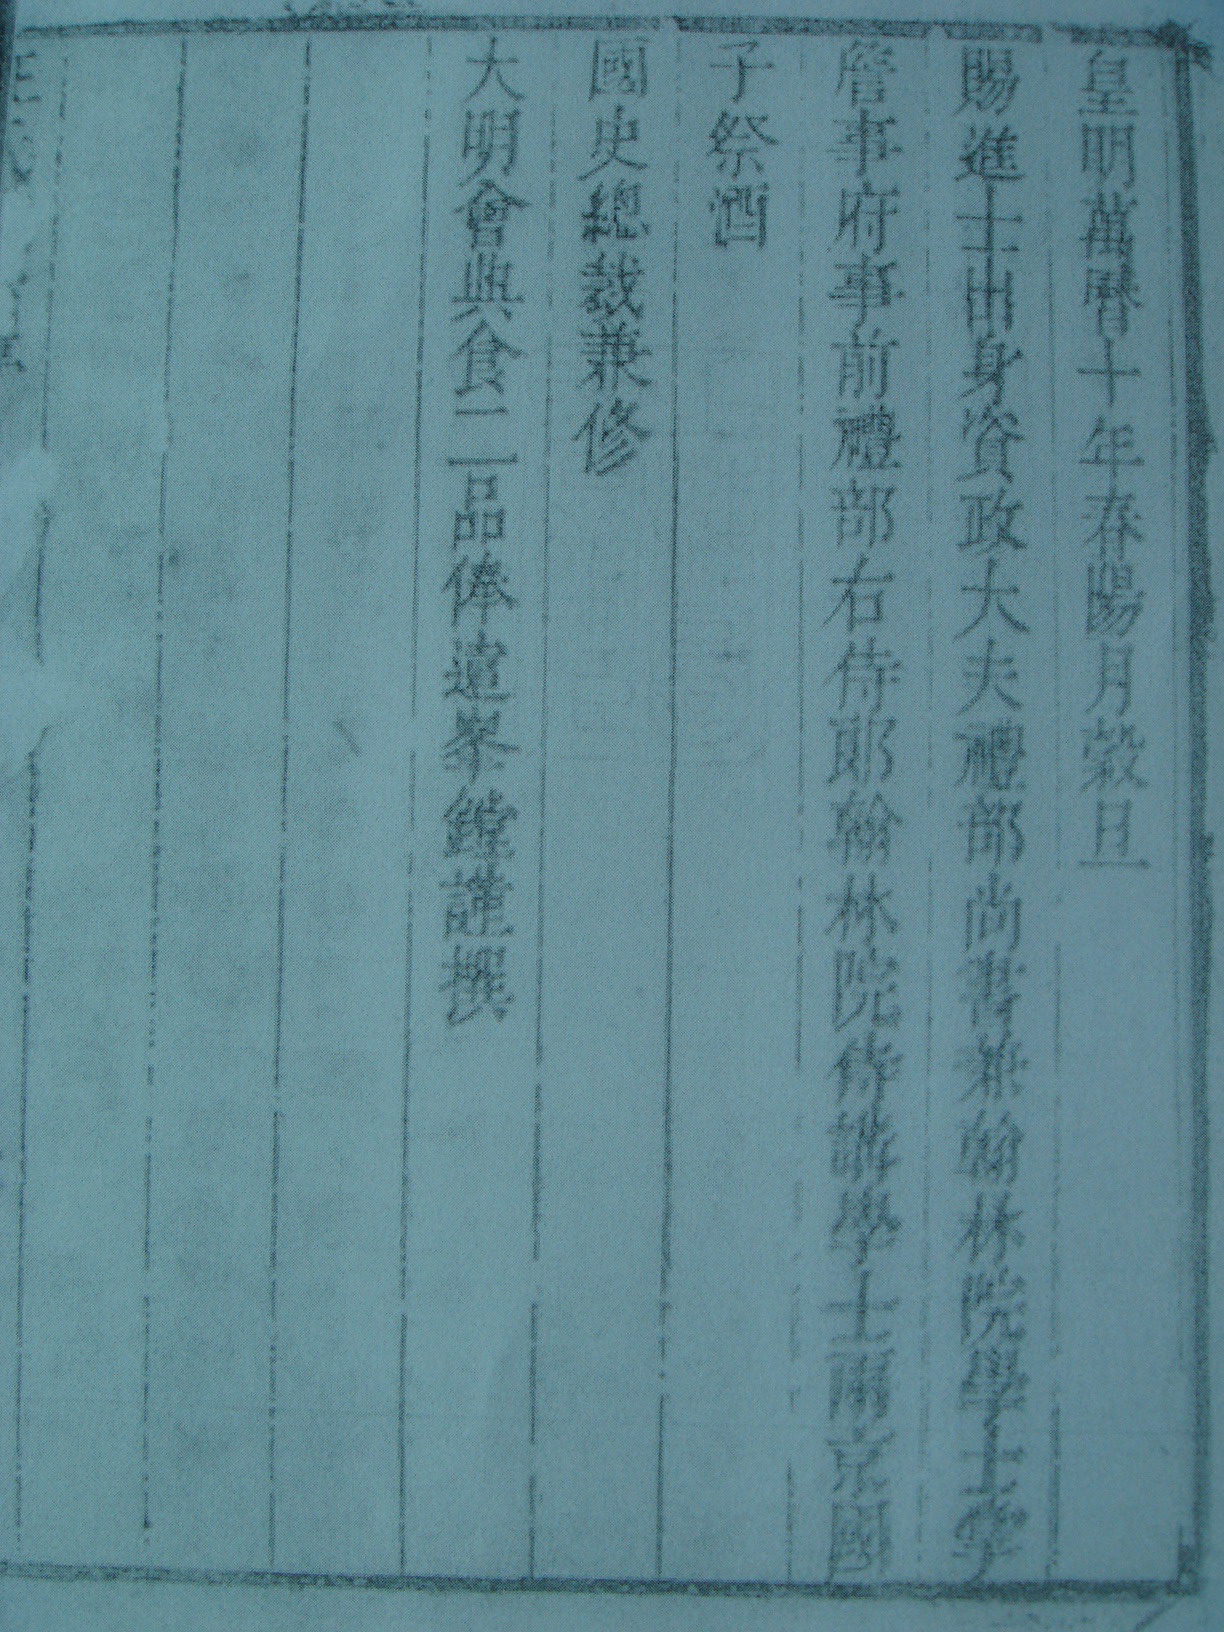 皇明萬曆十年春陽月穀旦
賜進士出身資政大夫禮部尚書兼翰林院學士掌
詹事府事前禮部右侍郎翰林院侍讀學士兩京國
子祭酒
國史總裁兼修
大明會典食二品俸遺峯謹撰